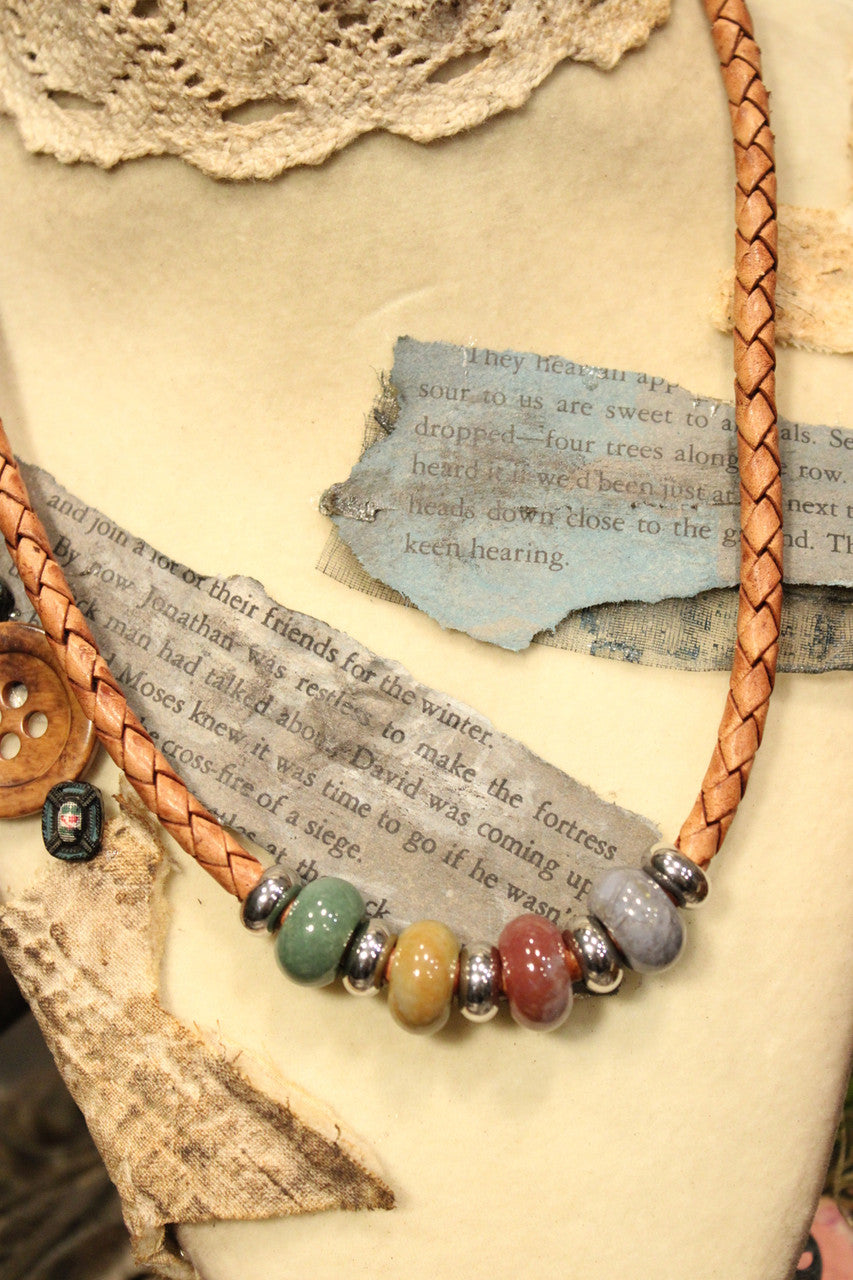 They hear an app
sour to us are sweet to a als. Se
dropped—four trees along e row.
heard it if we'd been just at next t
heads down close to the g nd. Th
keen hearing.
and join a lot of their friends for the winter.
By now Jonathan was restless to make the fortress
ck man had talked about David was coming up
d Moses knew it was time to go if he wasn't
he cross-fire of a siege.
at th
ck